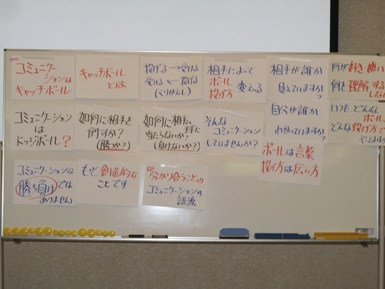 コミュニケーションは
キャッチボール
キャッチボール
とは
投げる→受ける
受ける←投げる
(くりかえし)
相手によって
ボール
投げ方
変える
相手が誰か
見えていますか?
自分が誰か
わかっていますか?
何が好き嫌い
何を理解する
コミュニケーション
は
ドッジボール?
如何に相手を
倒すか?
(勝か?)
如何に相手に
当たらないか?
(負けないか?)
そんな
コミュニケーション
していませんか?
ボールは言葉
投げ方は伝え方
いつもどんな
ボール
どんな投げ方で
コミュニケーションは
勝ち負けでは
ありません
もっと創造的な
ことです
分かり合うことが
コミュニケーションの
語源